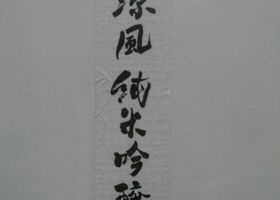 涼風純米吟醸